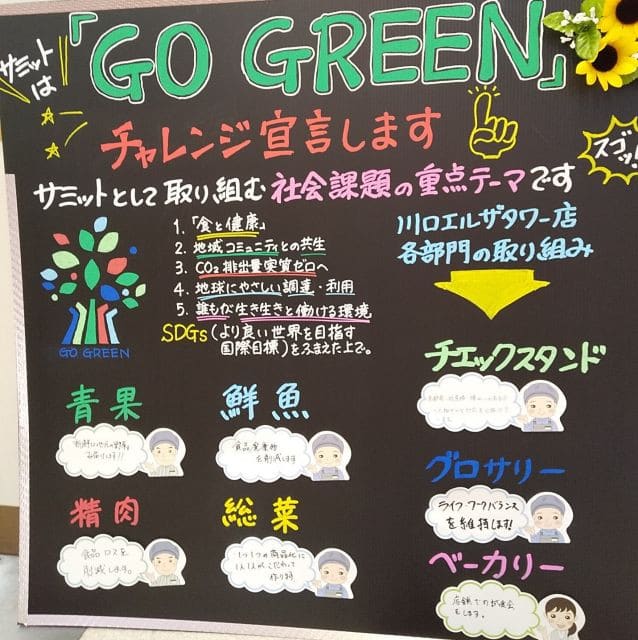 サミットは
「GO GREEN」
チャレンジ宣言します
スゴッ!
サミットとして取り組む社会課題の重点テーマです
1. 「食と健康」
2. 地域コミュニティとの共生
3. CO₂排出量実質ゼロへ
4. 地球にやさしい調達・利用
5. 誰もが生き生きと働ける環境
SDGs(より良い世界を目指す
国際目標)をふまえた上で。
GO GREEN
川口エルザタワー店
各部門の取り組み
チェックスタンド
青果
鮮魚
食品廃棄物
を削減します
グロサリー
ライフ・ワークバランス
を維持します!
精肉
食品ロスを
削減します。
総菜
1つ1つの商品に
1人1人がこだわって
作ります
ベーカリー
店舗での試食会
をします。